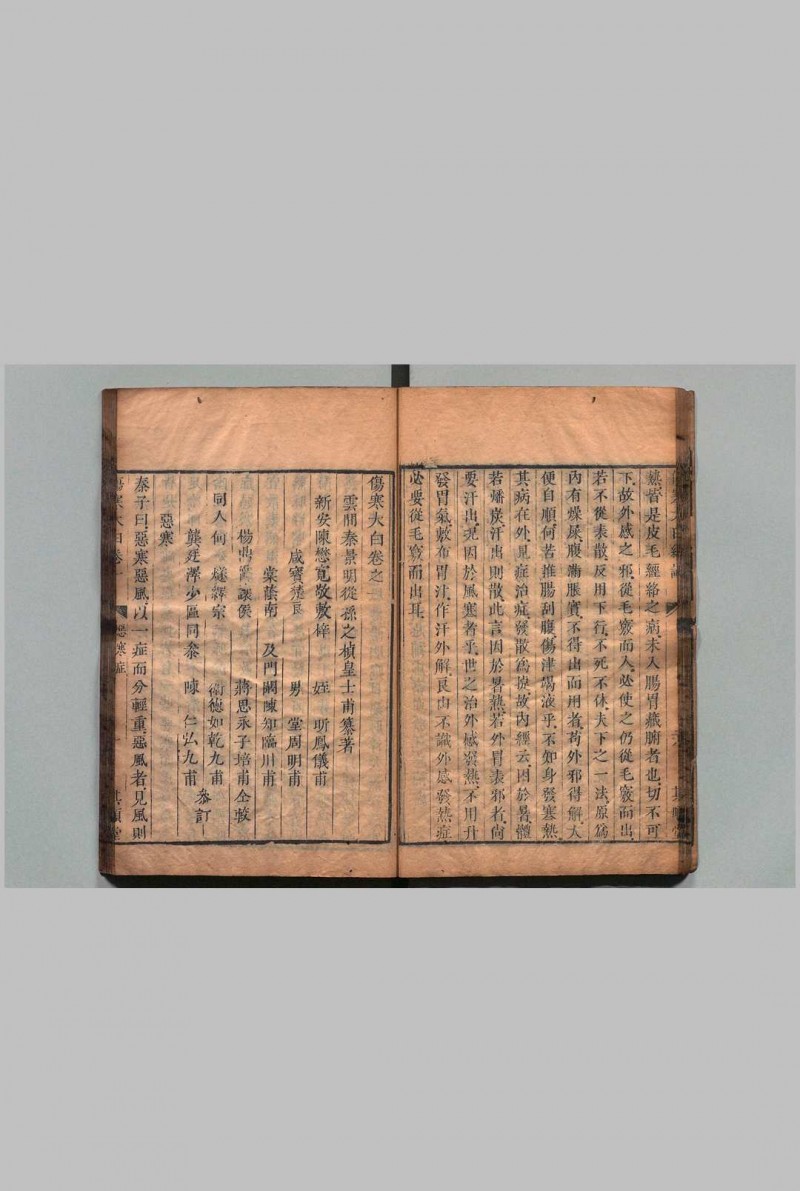 熱皆是皮毛經絡之病未入腸胃藏腑者也切不可
下故外感之邪從毛竅而入必使之仍從毛竅而出
若不從表散反用下行不死不休夫下之一法原爲
內有燥屎腹滿脹實不得出而用者苟外邪得解大
便自順何若推腸刮腹傷津竭液乎不知身發寒熱
其病在外見症治症發散爲原故內經云因於暑體
若燔炭汗出則散此言因於暑熱若外冒表邪者尚
要汗出况因於風寒者乎世之治外感發熱不用升
發胃氣敷布胃汁作汗外解良由不識外感發熱症
必要從毛竅而出耳
傷寒大白卷之一
雲間秦景明從孫之楨皇士甫纂著
新安陳懋寬敬敷梓 姪 昕鳳儀甫
咸寶楚良 男 堂周明甫
棠蔭南 及門闕陳知臨川甫
蔣思永子培甫仝較
同人何 鏞繹宗 衛德如乾九甫
龔廷澤少區同參 陳 仁弘九甫
參訂
惡寒
秦子曰惡寒惡風以一症而分輕重惡風者見風則
傷寒大白卷一 惡寒症 其順堂